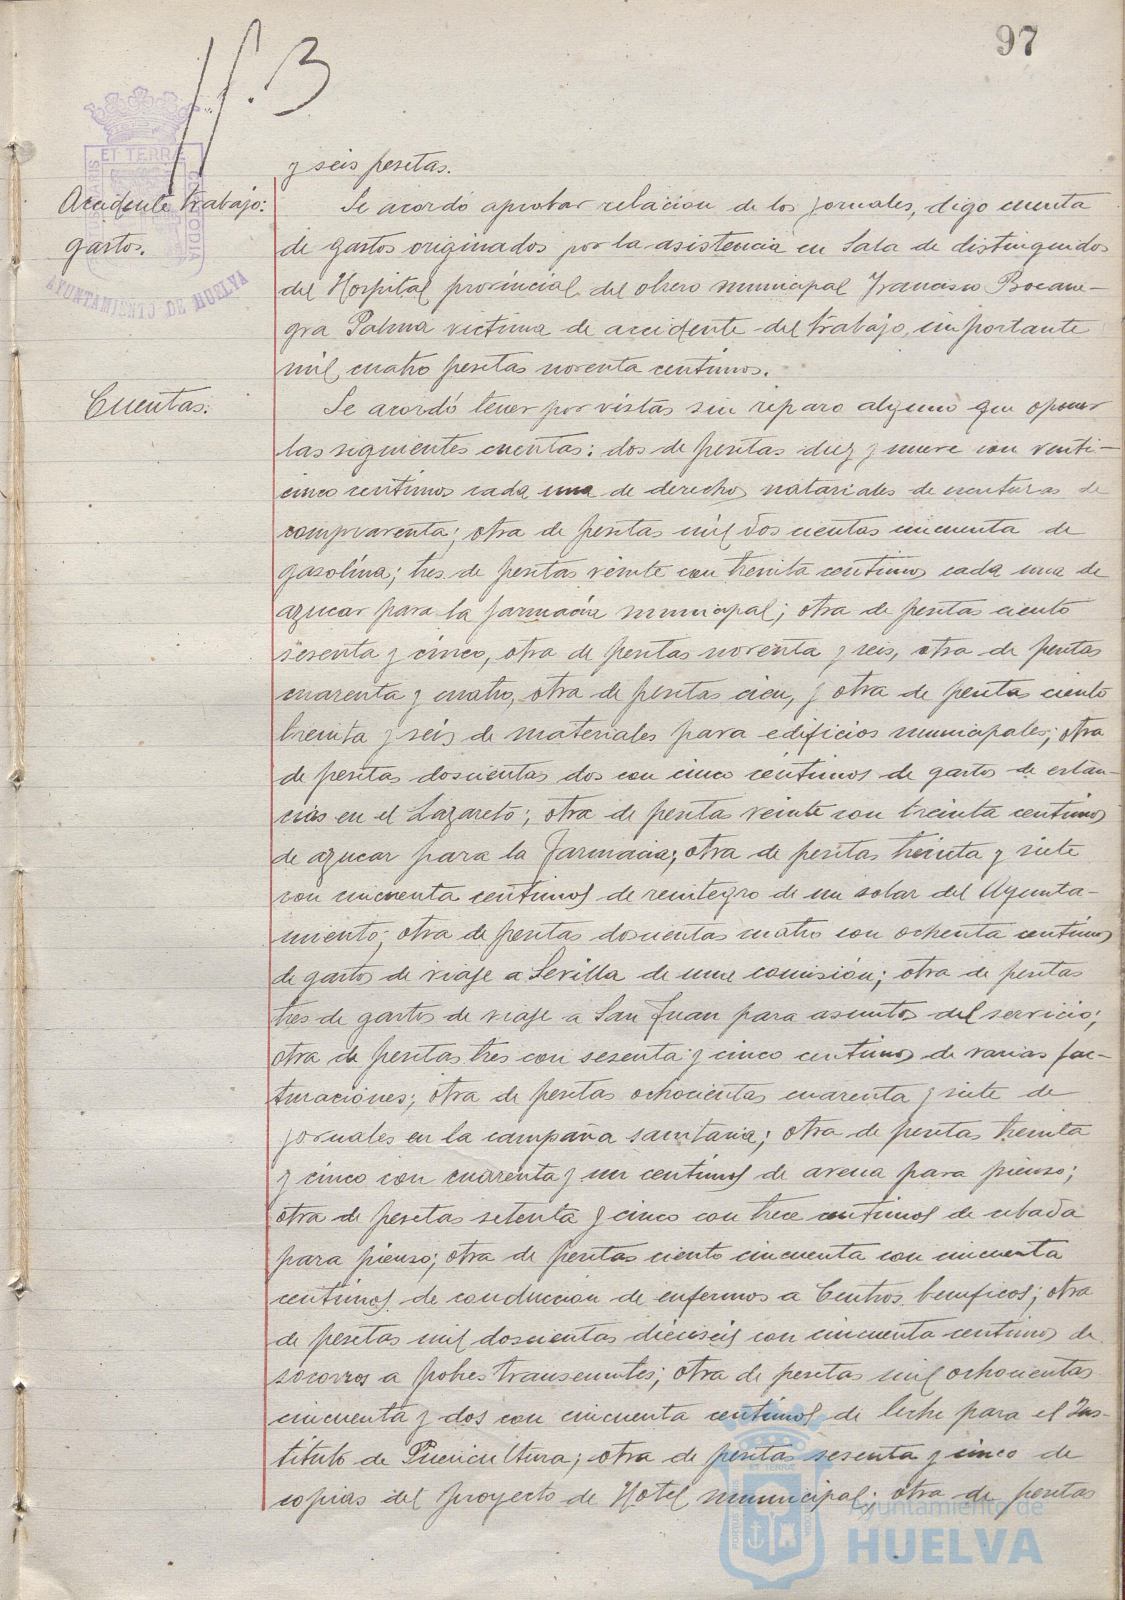 97
y seis pesetas.
Accidente trabajo:
gastos.
Se acordó aprobar relacion de los jornales, digo cuenta
de gastos originados por la asistencia en Sala de distinguidos
del Hospital provincial del obrero municipal Francisco Bocane-
gra Palma victima de accidente del trabajo, importante
mil cuatro pesetas noventa centimos.
Cuentas.
Se acordó tener por vistas sin reparo alguno que oponer
las siguientes cuentas: dos de pesetas diez y nueve con venti-
cinco centimos cada una de derechos notariales de escrituras de
compraventa; otra de pesetas mil dos cientas cincuenta de
gasolina; tres de pesetas veinte con treinta centimos cada una de
azucar para la farmacia municipal; otra de pesetas ciento
sesenta y cinco, otra de pesetas noventa y seis, otra de pesetas
cuarenta y cuatro, otra de pesetas cien, y otra de pesetas ciento
treinta y seis de materiales para edificios municipales; otra
de pesetas doscientas dos con cinco centimos de gastos de estan-
cias en el Lazareto; otra de peseta veinte con treinta centimos
de azucar para la farmacia; otra de pesetas treinta y siete
con cincuenta centimos de reintegro de un solar del Ayunta-
miento; otra de pesetas doscientas cuatro con ochenta centimos
de gastos de viaje a Sevilla de una comisión; otra de pesetas
tres de gastos de viaje a San Juan para asuntos del servicio;
otra de pesetas tres con sesenta y cinco centimos de varias fac-
turaciones; otra de pesetas ochocientas cuarenta y siete de
jornales en la campaña sanitaria; otra de pesetas treinta
y cinco con cuarenta y un centimos de avena para pienso;
otra de pesetas setenta y cinco con trece centimos de cebada
para pienso; otra de pesetas ciento cincuenta con cincuenta
centimos de conduccion de enfermos a Centros beneficos; otra
de pesetas mil doscientas dieciseis con cincuenta centimos de
socorros a pobres transeuntes; otra de pesetas mil ochocientas
cincuenta y dos con cincuenta centimos de leche para el Ins-
tituto de Puericultura; otra de pesetas sesenta y cinco de
copias del proyecto de Hotel municipal; otra de pesetas
ET TERRÆ
AYUNTAMIENTO DE HUELVA
Ayuntamiento de
HUELVA